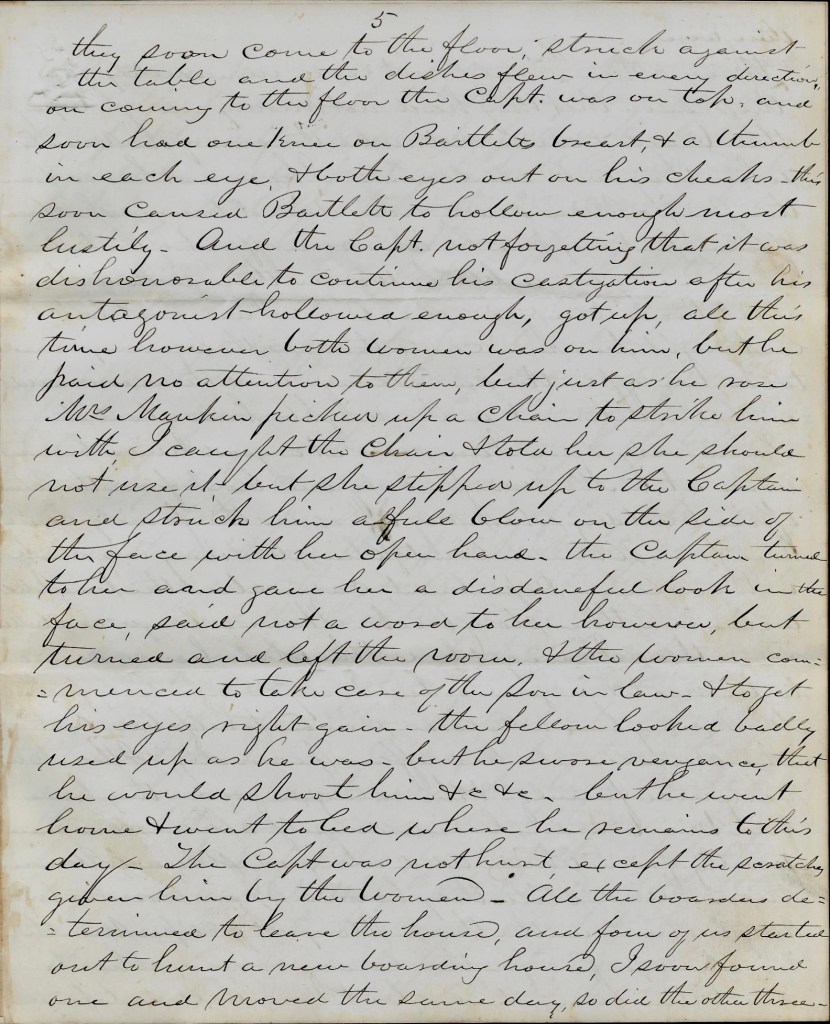 5
they soon come to the floor, struck against
the table and the dishes flew in every direction,
on coming to the floor the Capt. was on top, and
soon had one knee on Bartletts breast, & a thumb
in each eye, & both eyes out on his cheaks - this
soon caused Bartlett to hollow enough most
lustily - And the Capt. not forgetting that it was
dishonorable to continue his castigation after his
antagonist hollowed enough, got up, all this
time however both women was on him, but he
paid no attention to them, but just as he rose
Mrs Mankin picked up a chair to strike him
with, I caught the chair & told her she should
not use it - but she stepped up to the Captain
and struck him a full blow on the side of
the face with her open hand - the Captain turned
to her and gave her a disdaneful look in the
face, said not a word to her however, but
turned and left the room, & the women com=
=menced to take care of the son in law - & to get
his eyes right gain - the fellow looked badly
used up as he was - but he swore vengance, that
he would shoot him &c &c - but he went
home & went to bed where he remains to this
day - The Capt was not hurt, except the scratches
given him by the women - All the boarders de=
=termined to leave the house, and four of us started
out to hunt a new boarding house, I soon found
one and moved the same day, so did the other three -